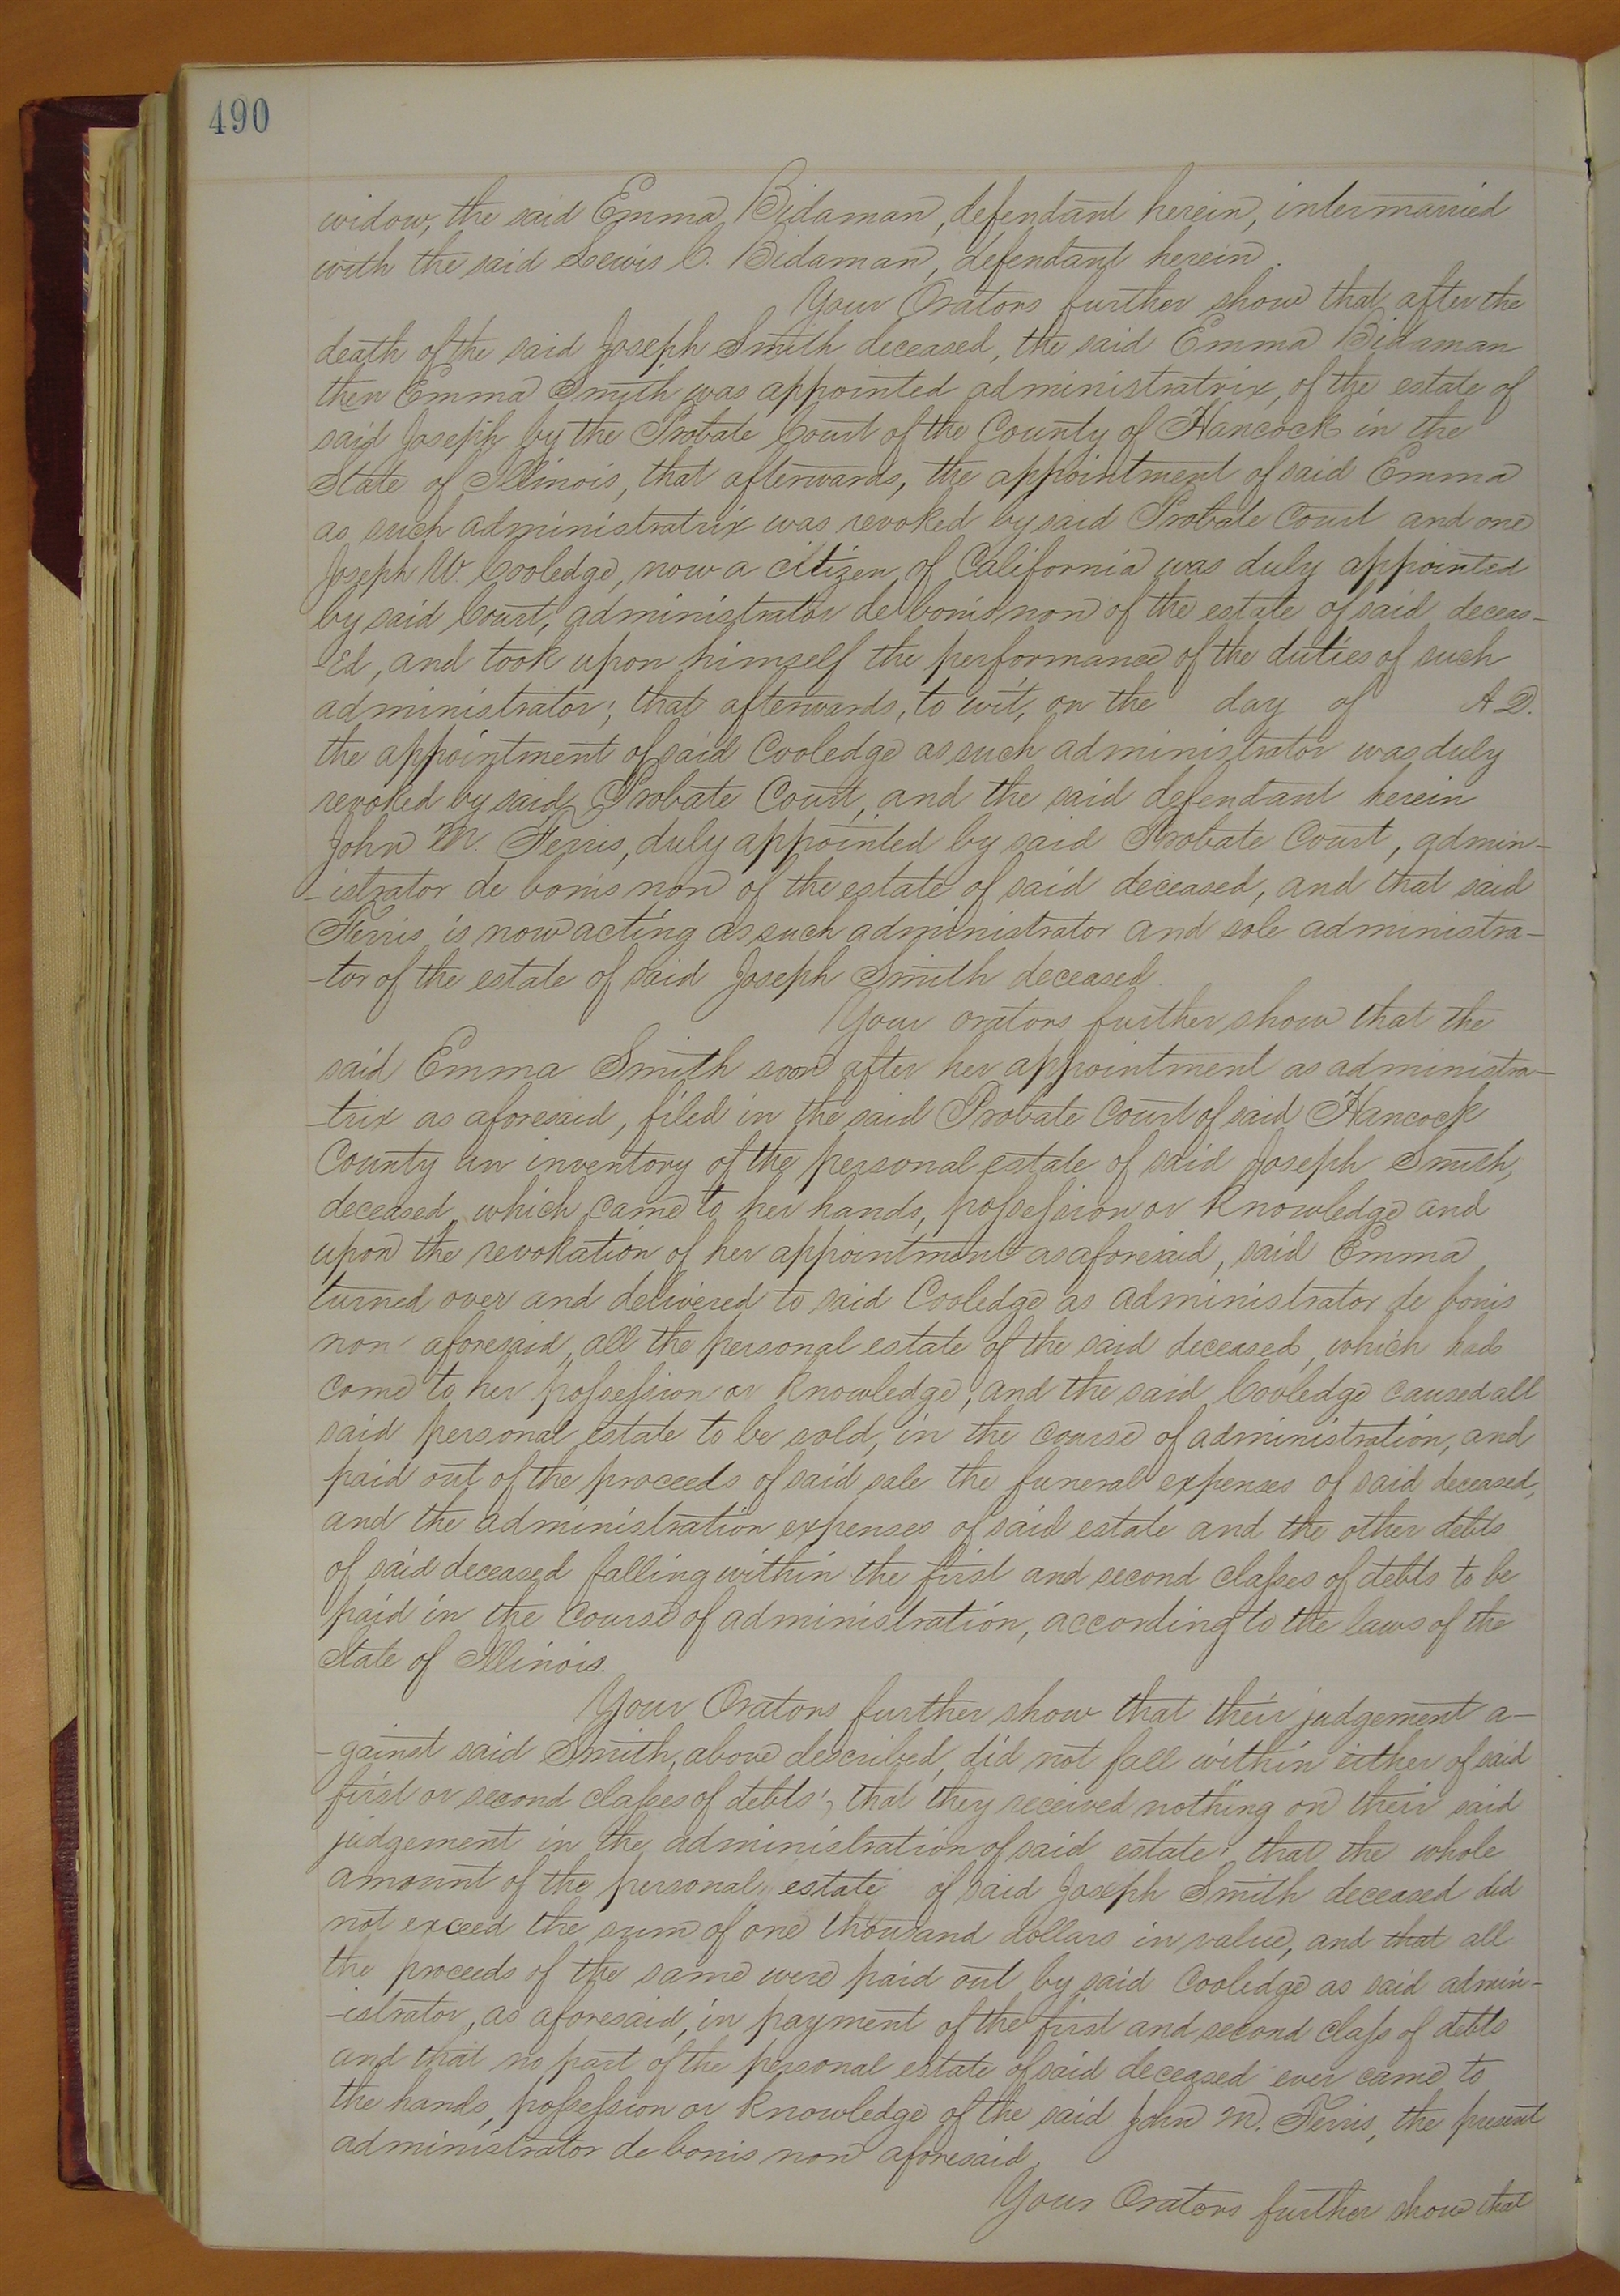 490
widow, the said Emma Bidaman, defendant herein, intermarried
with the said Lewis C. Bidaman, defendant herein.
Your Orators further show that after the
death of the said Joseph Smith deceased, the said Emma Bidaman
then Emma Smith was appointed administratrix, of the estate of
said Joseph by the Probate Court of the County of Hancock in the
State of Illinois, that afterwards, the appointment of said Emma
as such administratrix was revoked by said Probate Court and one
Joseph W. Cooledge, now a citizen of California was duly appointed
by said Court, administrator de bonis non of the estate of said deceas-
-ed, and took upon himself the performance of the duties of such
administrator; that afterwards, to wit, on the day of A.D.
the appointment of said Cooledge as such administrator was duly
revoked by said Probate Court, and the said defendant herein
John M. Ferris, duly appointed by said Probate Court, admin-
-istrator de bonis non of the estate of said deceased, and that said
Ferris is now acting as such administrator and sole administra-
-tor of the estate of said Joseph Smith deceased.
Your orators further show that the
said Emma Smith soon after her appointment as administra-
-trix as aforesaid, filed in the said Probate Court of said Hancock
County an inventory of the personal estate of said Joseph Smith,
deceased, which came to her hands, possession or knowledge and
upon the revokation of her appointment as aforesaid, said Emma
turned over and delivered to said Cooledge as administrator de bonis
non aforesaid, all the personal estate of the said deceased, which had
come to her possession or knowledge; and the said Cooledge caused all
said personal estate to be sold, in the course of administration, and
paid out of the proceeds of said sale the funeral expenses of said deceased,
and the administration expenses of said estate and the other debts
of said deceased falling within the first and second classes of debts to be
paid in the course of administration, according to the laws of the
State of Illinois.
Your Orators further show that their judgement a-
-gainst said Smith, above described, did not fall within either of said
first or second classes of debts; that they received nothing on their said
judgement in the administration of said estate; that the whole
amount of the personal estate of said Joseph Smith deceased did
not exceed the sum of one thousand dollars in value, and that all
the proceeds of the same were paid out by said Cooledge as said admin-
-istrator, as aforesaid, in payment of the first and second class of debts
and that no part of the personal estate of said deceased ever came to
the hands, possession or knowledge of the said John M. Ferris, the present
administrator de bonis non aforesaid.
Your Orators further show that